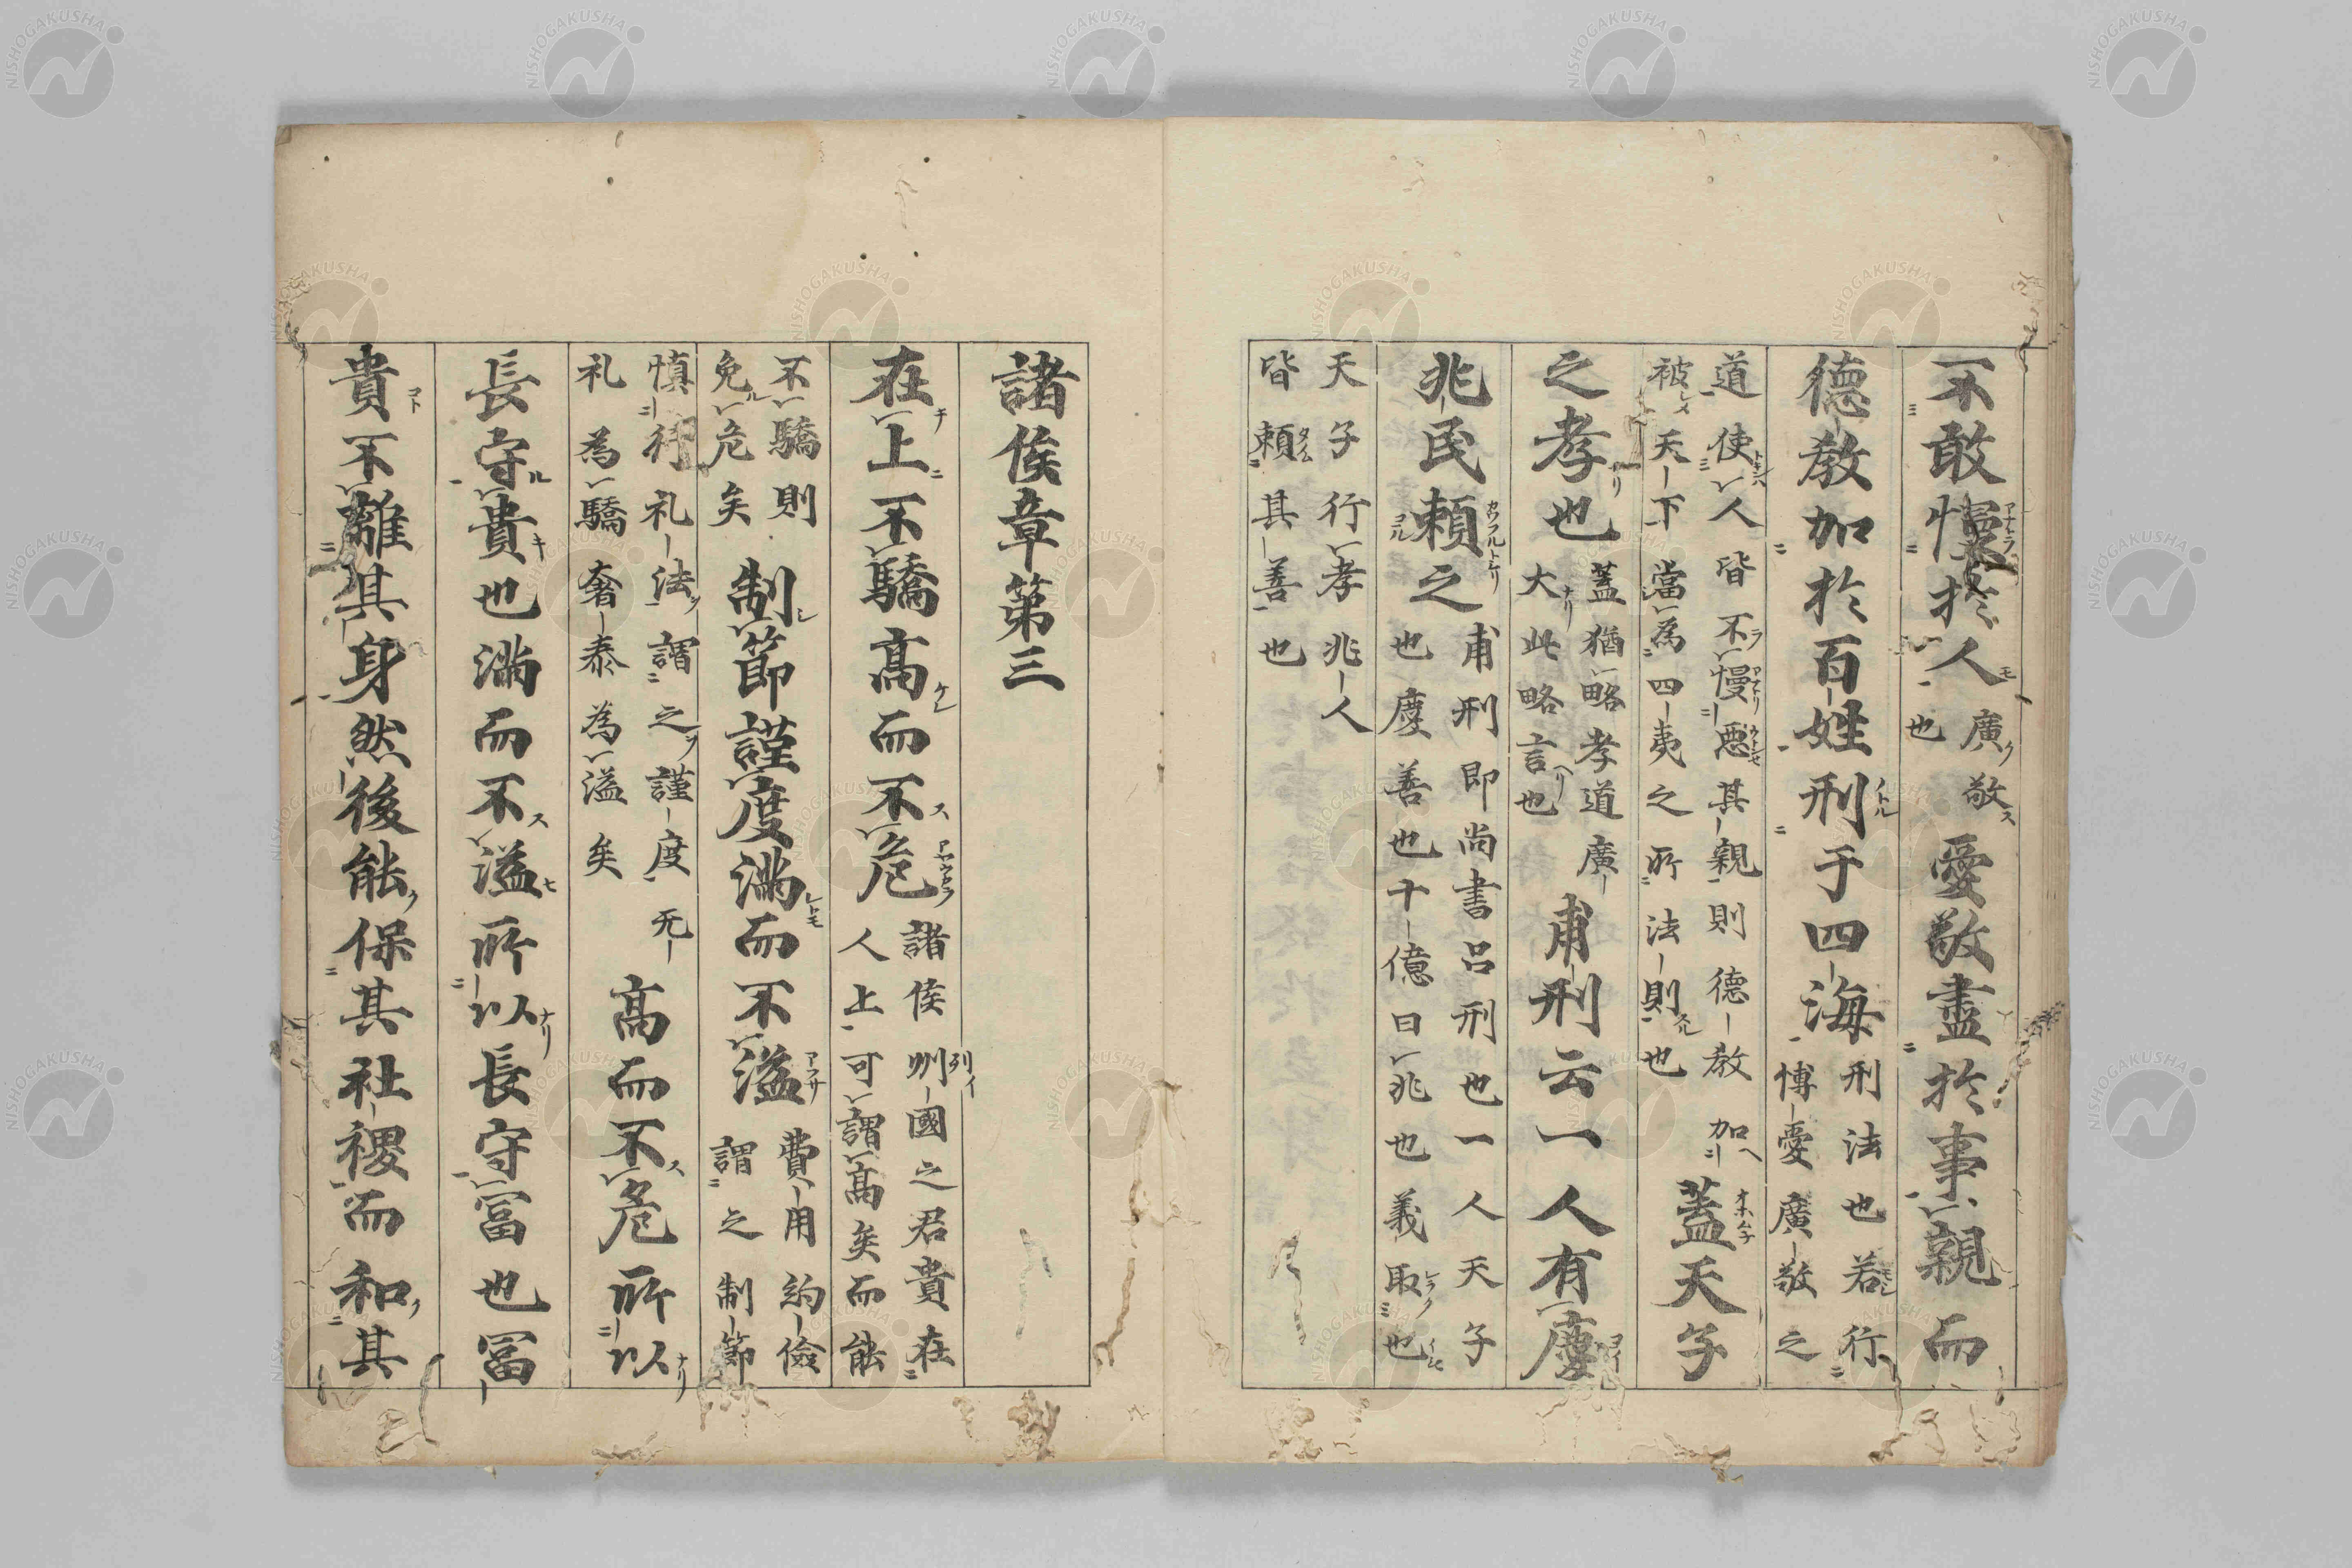 不敢慢於人廣敬
也
愛敬盡於事親而
德教加於百姓刑于四海刑法也若行
博愛廣敬之
道使人皆不慢惡其親則德教加
被天下當為四夷之所法則也
蓋天子
之孝也蓋猶略孝道廣
大此略言也
甫刑云一人有慶
兆民頼之甫刑即尚書呂刑也一人天子
也慶善也十億曰兆也義取也
天子行孝兆人
皆頼其善也
諸侯章第三
在上不驕高而不危諸侯列國之君貴在
人上可謂高矣而能
不驕則
免危矣
制節謹度滿而不溢費用約儉
謂之制節
慎行礼法謂之謹度无
礼為驕奢泰為溢矣
高而不危所以
長守貴也滿而不溢所以長守冨也冨
貴不離其身然後能保其社稷而和其
NISHOGAKUSHA